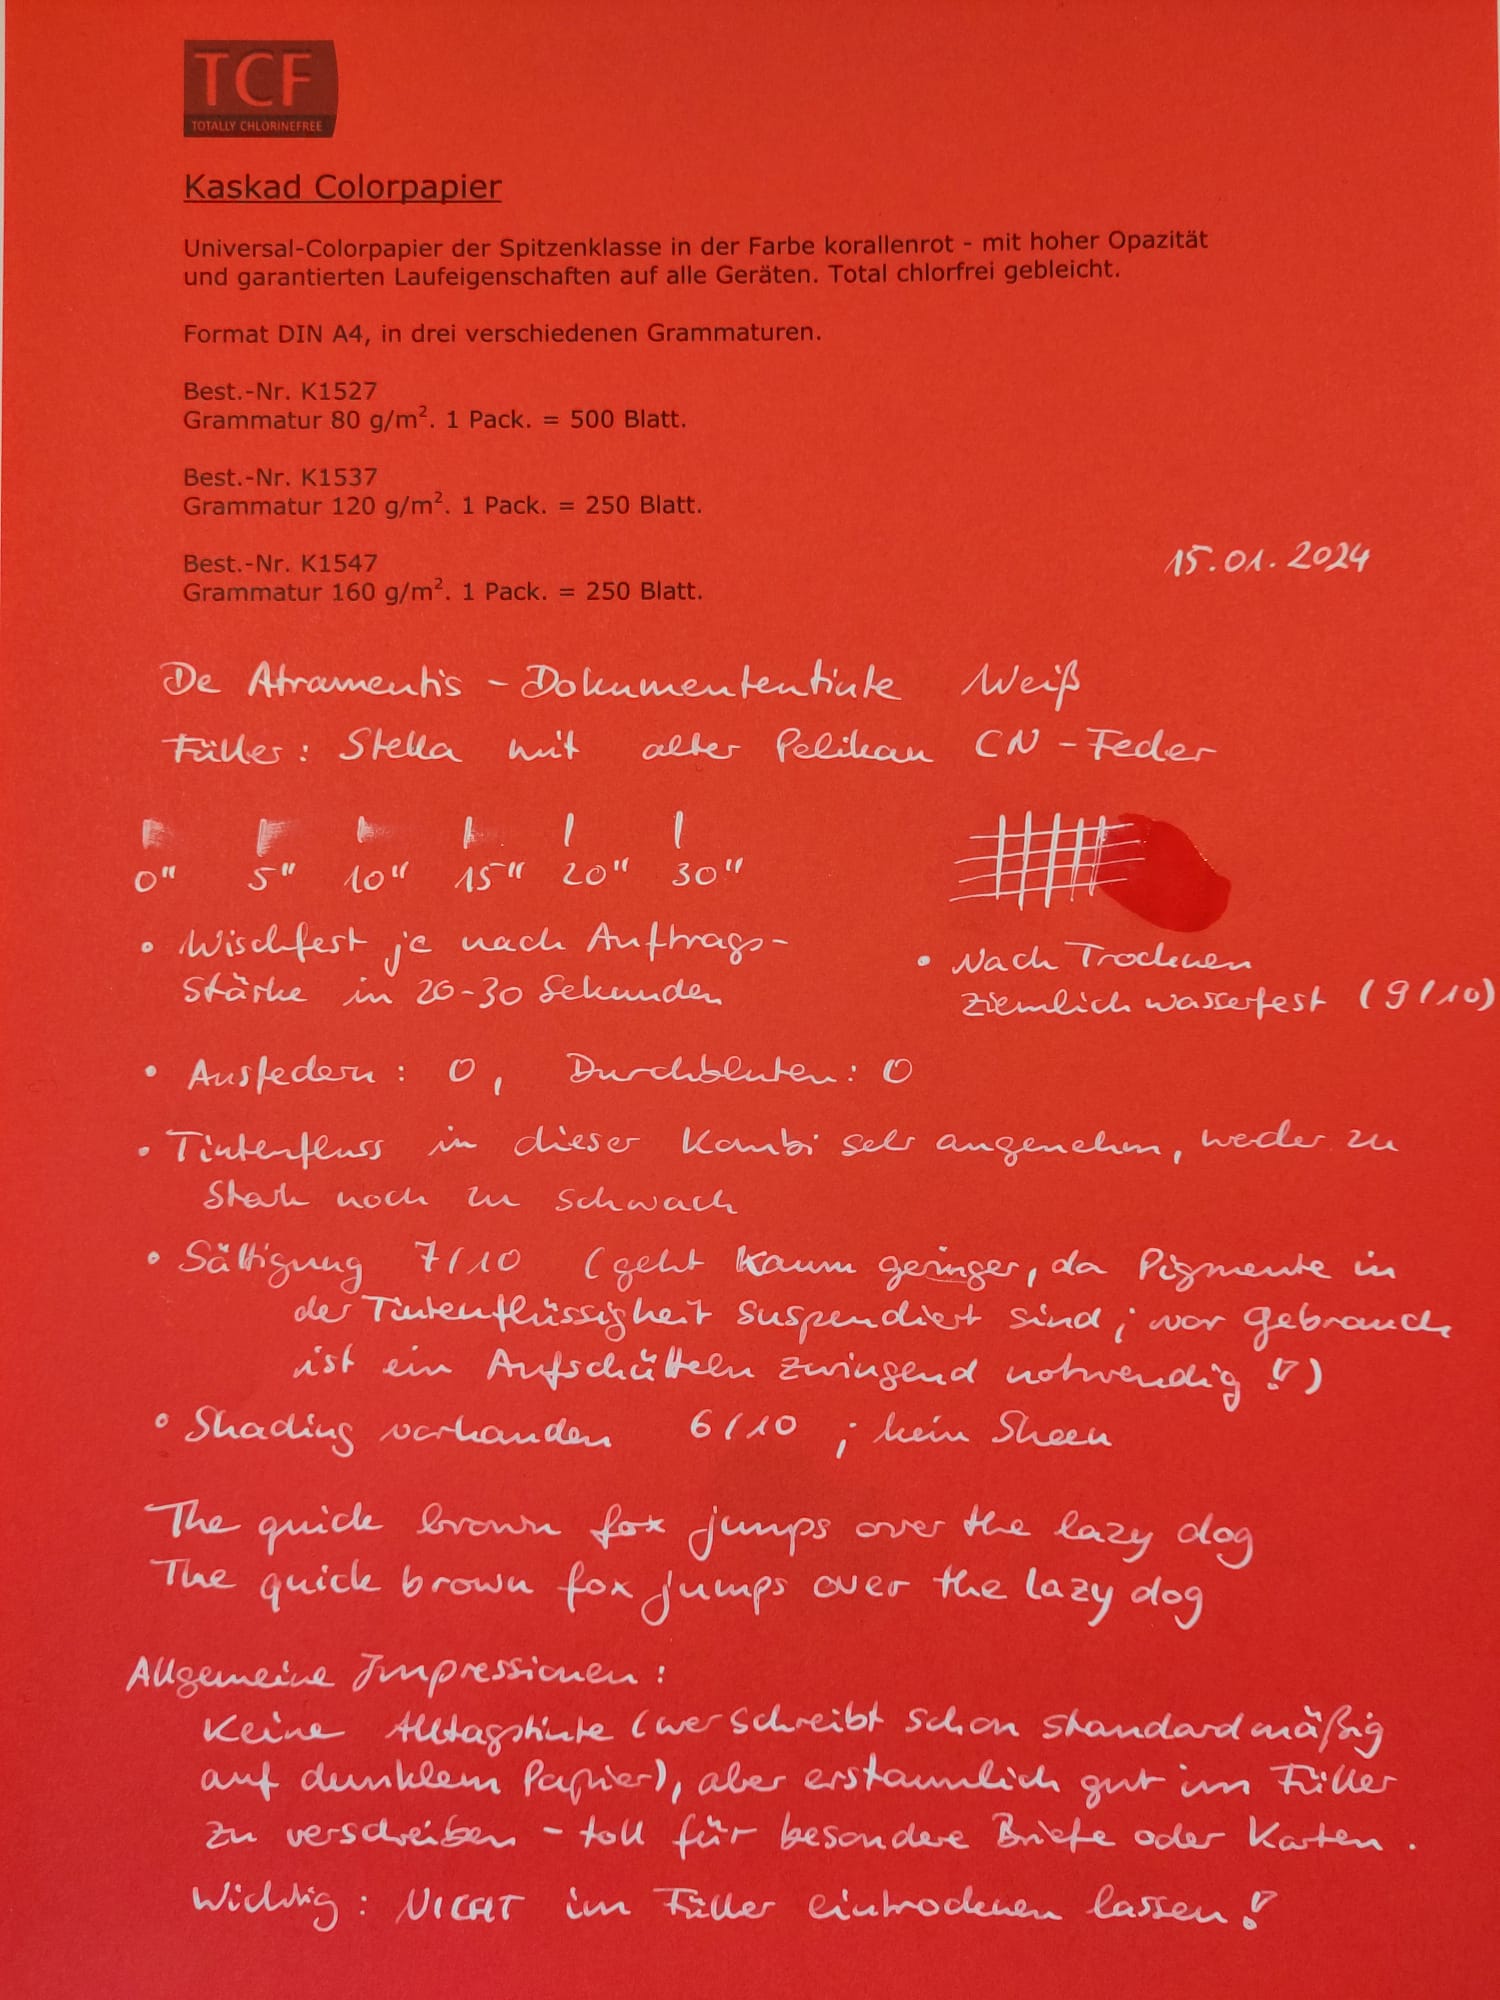 TCF
TOTALLY CHLORINEFREE
Kaskad Colorpapier
Universal-Colorpapier der Spitzenklasse in der Farbe korallenrot - mit hoher Opazität
und garantierten Laufeigenschaften auf alle Geräten. Total chlorfrei gebleicht.
Format DIN A4, in drei verschiedenen Grammaturen.
Best.-Nr. K1527
Grammatur 80 g/m². 1 Pack. = 500 Blatt.
Best.-Nr. K1537
Grammatur 120 g/m². 1 Pack. = 250 Blatt.
Best.-Nr. K1547
Grammatur 160 g/m². 1 Pack. = 250 Blatt.
15.01.2024
De Atramentis - Dokumententinte Weiß
Füller: Stella mit alter Pelikan CN-Feder
0" 5" 10" 15" 20" 30"
• Wischfest je nach Auftrags-
Stärke in 20-30 Sekunden
• Nach Trocknen
ziemlich wasserfest (9/10)
• Ausfedern: 0, Durchbluten: 0
• Tintenfluss in dieser Kombi sehr angenehm, weder zu
stark noch zu schwach
• Sättigung 7/10 (geht kaum geringer, da Pigmente in
der Tintenflüssigkeit suspendiert sind; vor Gebrauch
ist ein Aufschütteln zwingend notwendig!)
• Shading vorhanden 6/10; kein Sheen
The quick brown fox jumps over the lazy dog
The quick brown fox jumps over the lazy dog
Allgemeine Impressionen:
Keine Alltagstinte (wer schreibt schon standardmäßig
auf dunklem Papier), aber erstaunlich gut im Füller
zu verschreiben - toll für besondere Briefe oder Karten.
Wichtig: NICHT im Füller eintrocknen lassen!